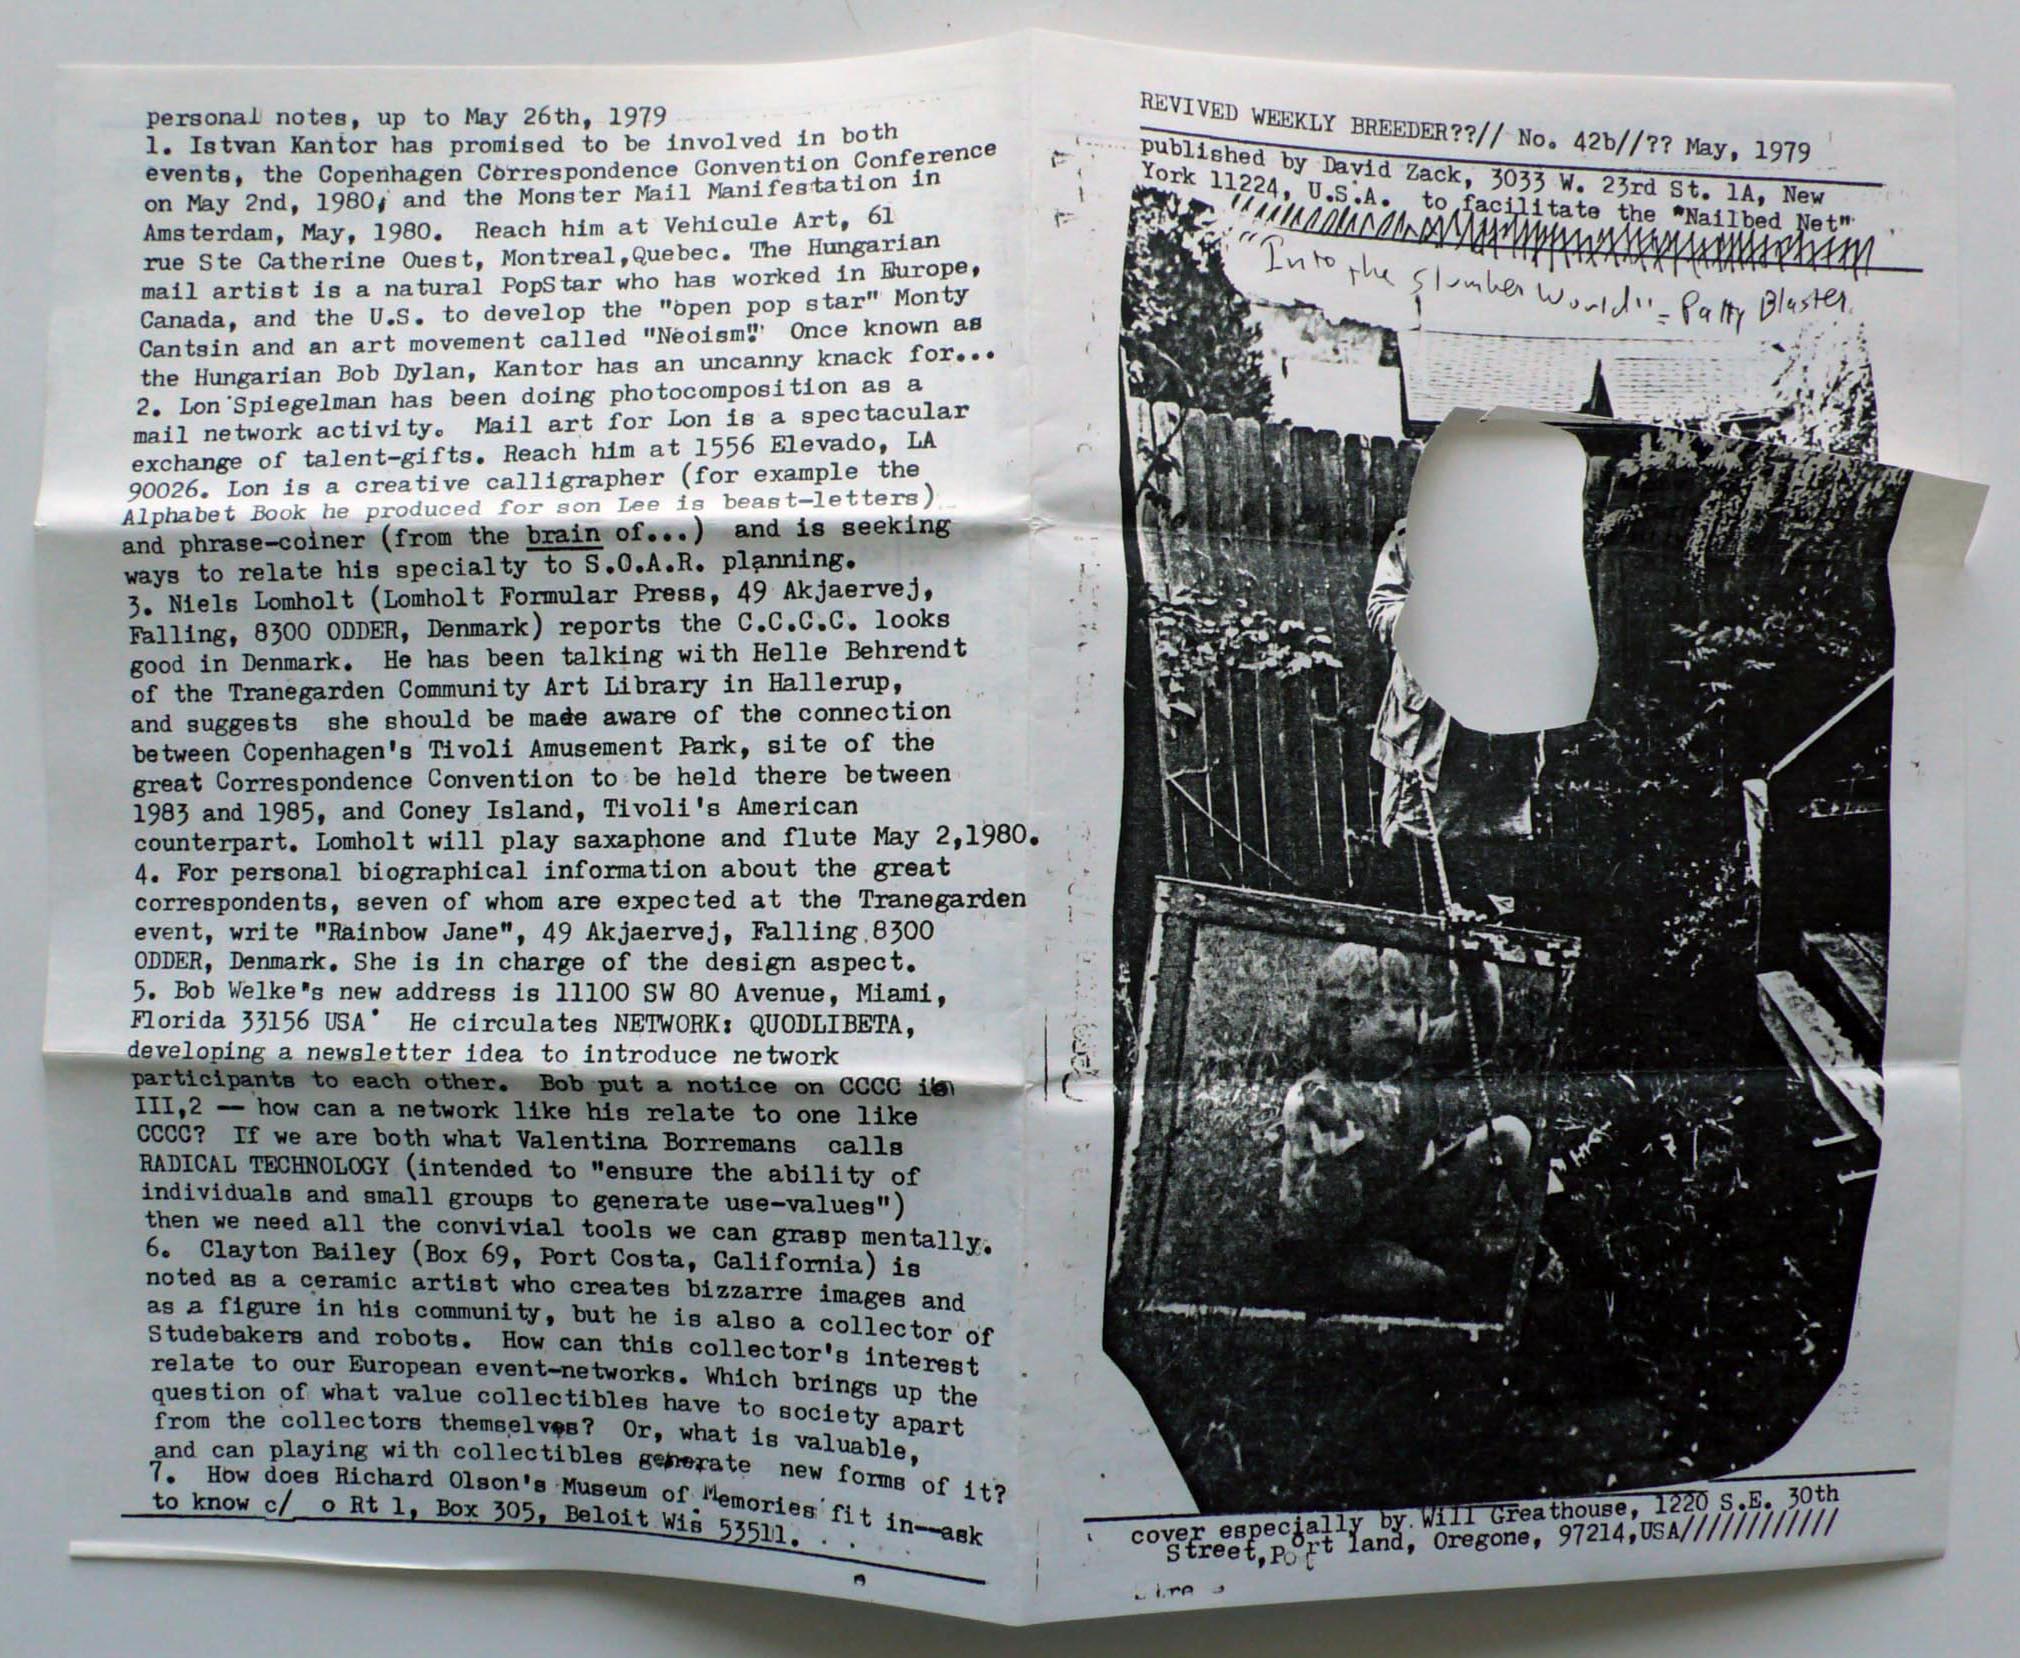 personal notes, up to May 26th, 1979
1. Istvan Kantor has promised to be involved in both
events, the Copenhagen Correspondence Convention Conference
on May 2nd, 1980, and the Monster Mail Manifestation in
Amsterdam, May, 1980. Reach him at Vehicule Art, 61
rue Ste Catherine Ouest, Montreal,Quebec. The Hungarian
mail artist is a natural PopStar who has worked in Europe,
Canada, and the U.S. to develop the "open pop star" Monty
Cantsin and an art movement called "Neoism." Once known as
the Hungarian Bob Dylan, Kantor has an uncanny knack for...
2. Lon Spiegelman has been doing photocomposition as a
mail network activity. Mail art for Lon is a spectacular
exchange of talent-gifts. Reach him at 1556 Elevado, LA
90026. Lon is a creative calligrapher (for example the
Alphabet Book he produced for son Lee is beast-letters)
and phrase-coiner (from the brain of...) and is seeking
ways to relate his specialty to S.O.A.R. planning.
3. Niels Lomholt (Lomholt Formular Press, 49 Akjaervej,
Falling, 8300 ODDER, Denmark) reports the C.C.C.C. looks
good in Denmark. He has been talking with Helle Behrendt
of the Tranegarden Community Art Library in Hallerup,
and suggests she should be made aware of the connection
between Copenhagen's Tivoli Amusement Park, site of the
great Correspondence Convention to be held there between
1983 and 1985, and Coney Island, Tivoli's American
counterpart. Lomholt will play saxaphone and flute May 2,1980.
4. For personal biographical information about the great
correspondents, seven of whom are expected at the Tranegarden
event, write "Rainbow Jane", 49 Akjaervej, Falling 8300
ODDER, Denmark. She is in charge of the design aspect.
5. Bob Welke"s new address is 11100 SW 80 Avenue, Miami,
Florida 33156 USA' He circulates NETWORK: QUODLIBETA,
developing a newsletter idea to introduce network
participants to each other. Bob put a notice on CCCC in
III,2 — how can a network like his relate to one like
CCCC? If we are both what Valentina Borremans calls
RADICAL TECHNOLOGY (intended to "ensure the ability of
individuals and small groups to generate use-values")
then we need all the convivial tools we can grasp mentally.
6. Clayton Bailey (Box 69, Port Costa, California) is
noted as a ceramic artist who creates bizzarre images and
as a figure in his community, but he is also a collector of
Studebakers and robots. How can this collector's interest
relate to our European event-networks. Which brings up the
question of what value collectibles have to society apart
from the collectors themselves? Or, what is valuable,
and can playing with collectibles generate new forms of it?
7. How does Richard Olson's Museum of Memories fit in—ask
to know c/ o Rt 1, Box 305, Beloit Wis 53511. . . .
REVIVED WEEKLY BREEDER??// No. 42b//?? May, 1979
published by David Zack, 3033 W. 23rd St. 1A, New
York 11224, U.S.A. to facilitate the "Nailbed Net"
"Into the Slumber World" - Patty Blaster
cover especially by Will Greathouse, 1220 S.E. 30th
Street,Port land, Oregone, 97214,USA////////////